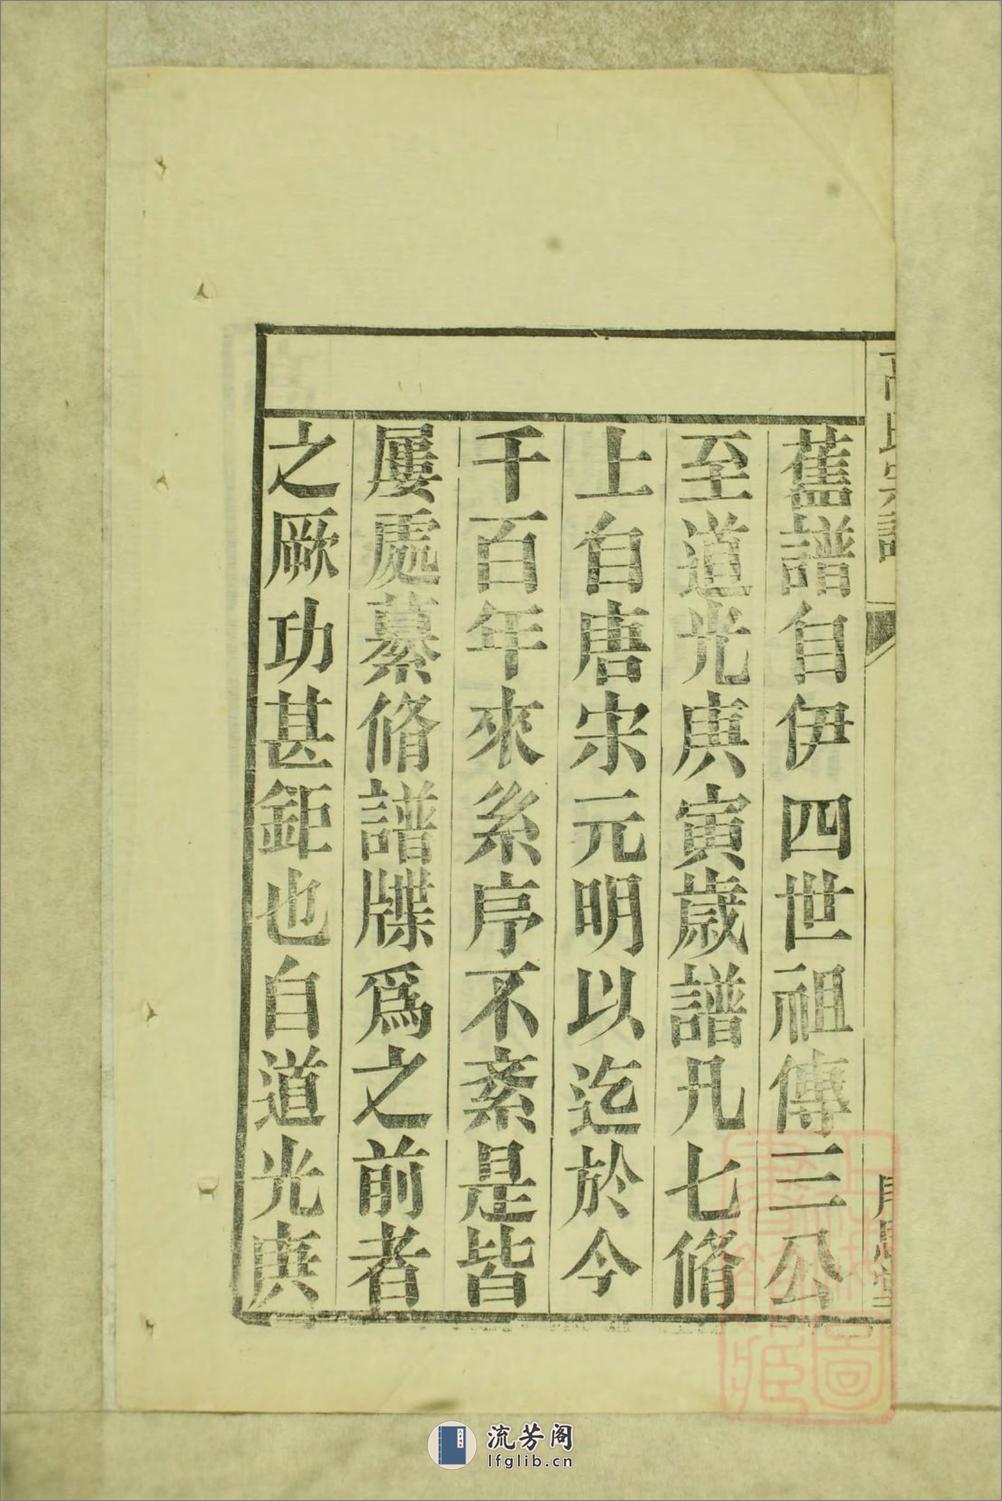 高氏宗譜
舊譜自伊四世祖傳三公
至道光庚寅歲譜凡七脩
上自唐宋元明以迄於今
千百年來糸序不紊是皆
屢處纂脩譜牒爲之前者
之厥功甚鉅也自道光庚
流芳阁
lfglib.cn